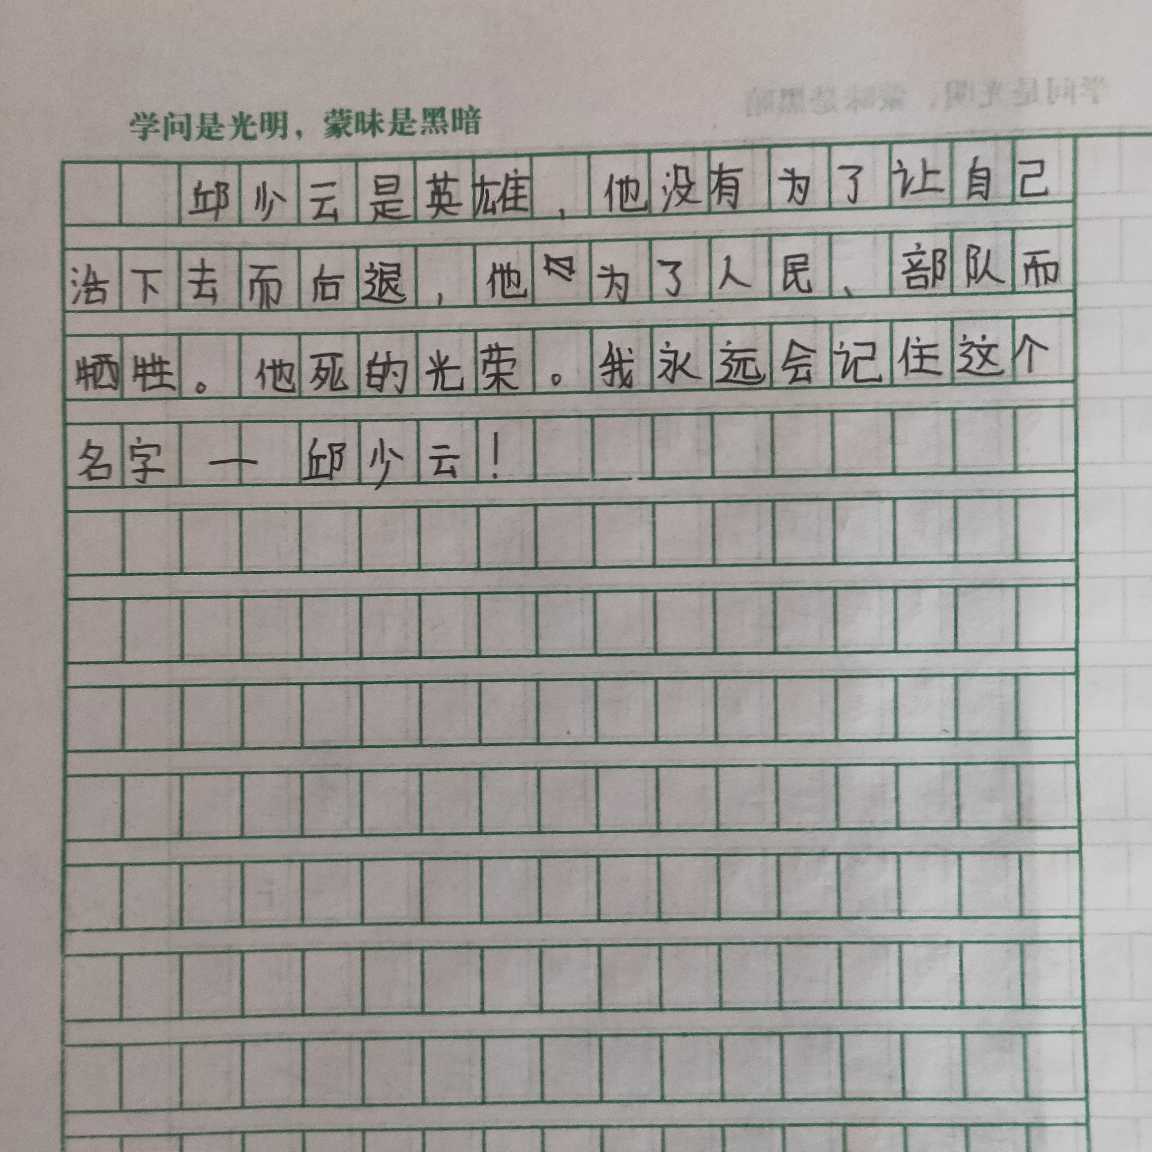 学问是光明，蒙昧是黑暗
邱少云是英雄，他没有为了让自己
活下去而后退，他为了人民、部队而
牺牲。他死的光荣。我永远会记住这个
名字—邱少云！